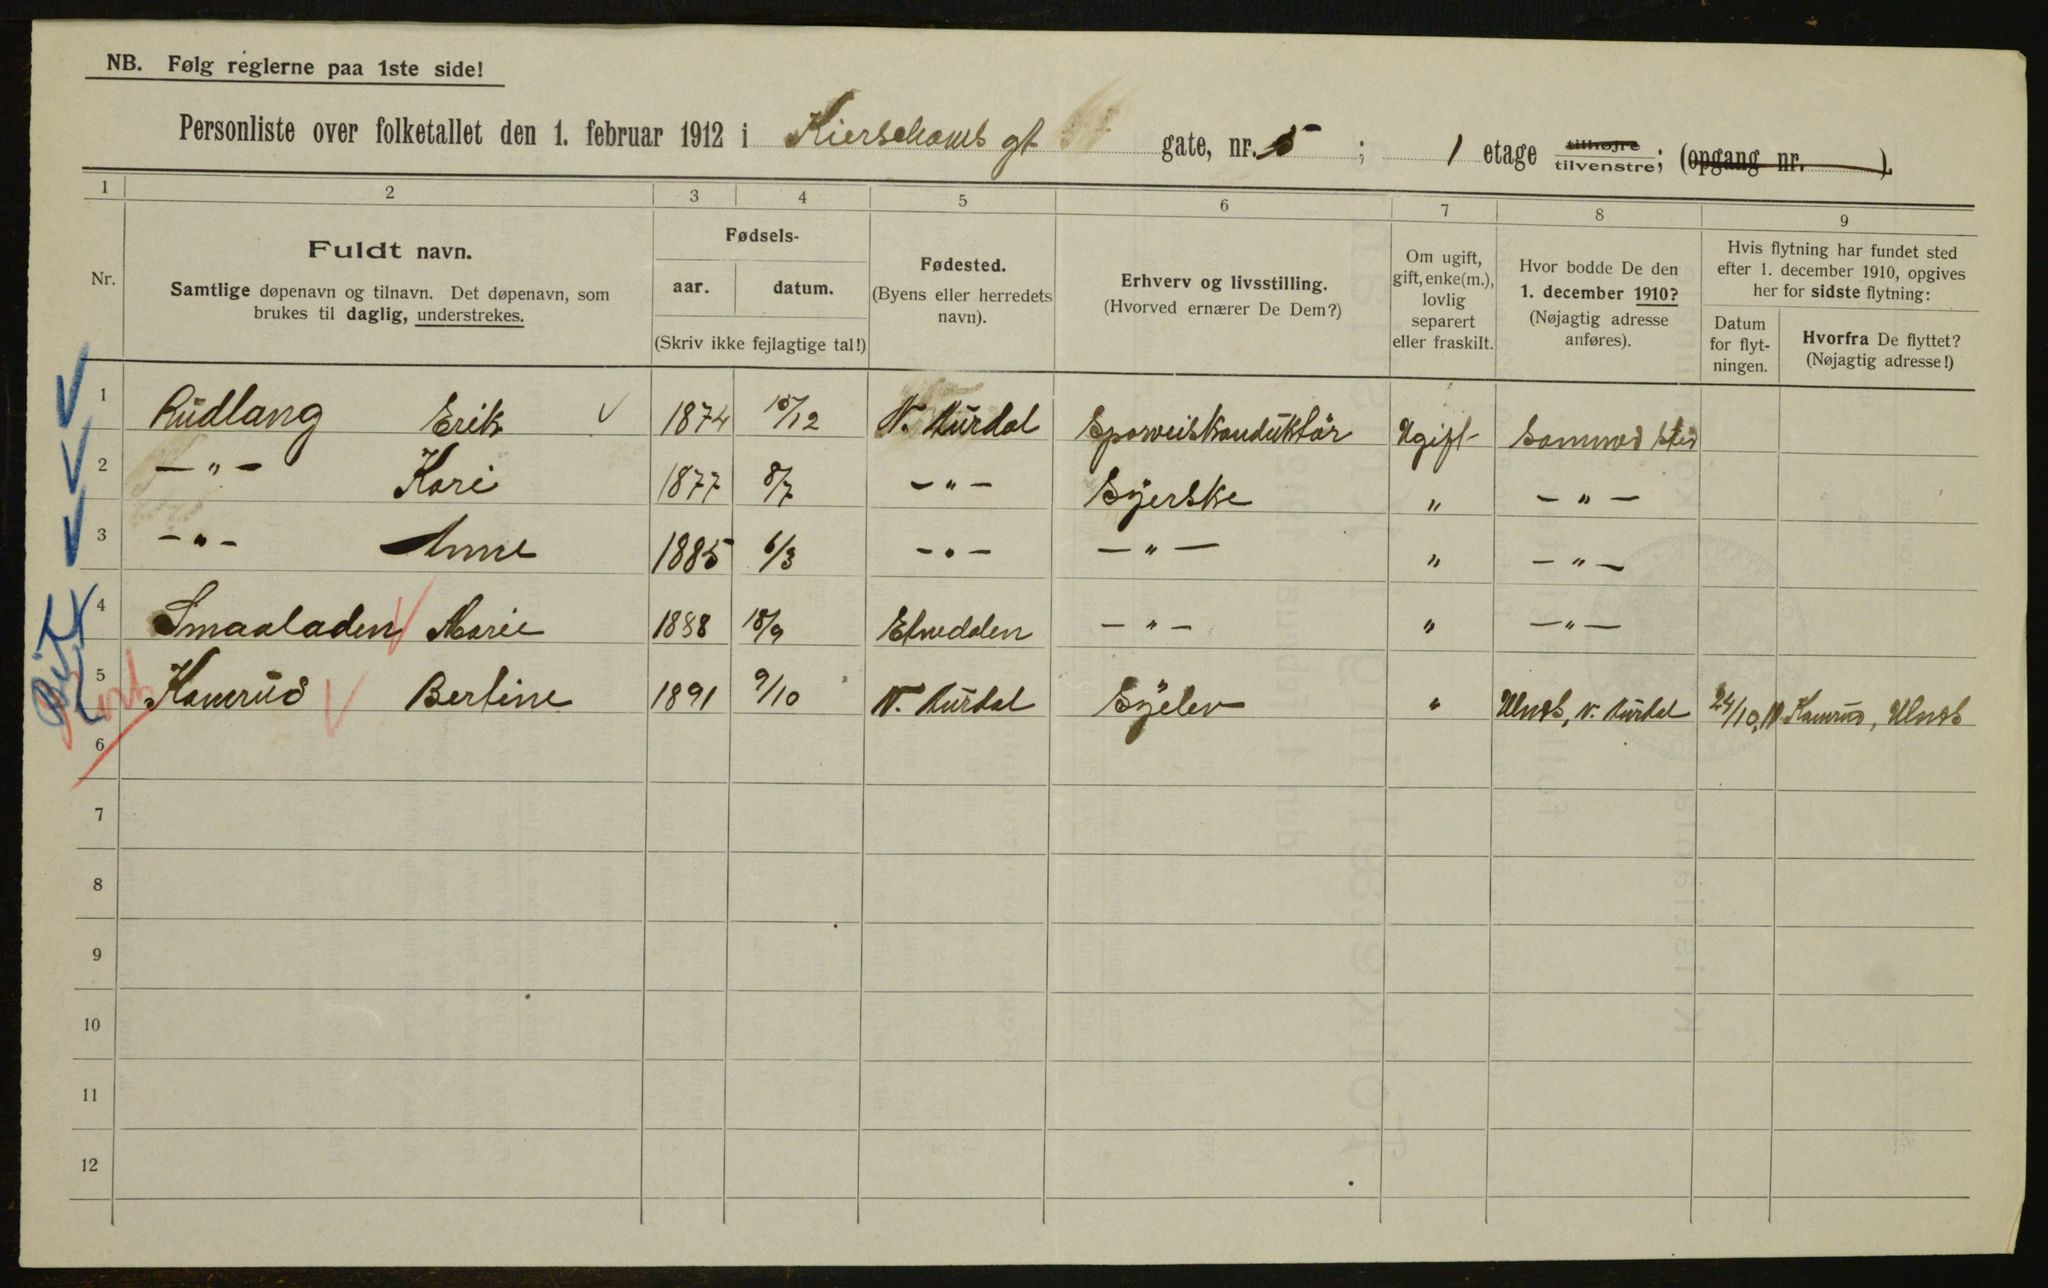 NB. Følg reglerne paa 1ste side!
Personliste over folketallet den 1. februar 1912 i Kierschows gt gate, nr. 5 ; 1 etage tilhøjre tilvenstre; (opgang nr. ).
1 2 3 4 5 6 7 8 9
Nr.
Fuldt navn.
Samtlige døpenavn og tilnavn. Det døpenavn, som
brukes til daglig, understrekes.
Fødsels-
aar. datum.
(Skriv ikke fejlagtige tal!)
Fødested.
(Byens eller herredets
navn).
Erhverv og livsstilling.
(Hvorved ernærer De Dem?)
Om ugift,
gift, enke(m.),
lovlig
separert
eller fraskilt.
Hvor bodde De den
1. december 1910?
(Nøjagtig adresse
anføres).
Hvis flytning har fundet sted
efter 1. december 1910, opgives
her for sidste flytning:
Datum
for flyt-
ningen.
Hvorfra De flyttet?
(Nøjagtig adresse!)
1 Rudlang Erik 1874 15/12 N. Aurdal Sporveiskonduktör Ugift Samme sted
2 — „ — Kari 1877 8/7 — „ — Syerske „ — „ —
3 — „ — Anne 1885 6/3 — „ — — „ — „ — „ —
4 Smaaladen Marie 1888 18/9 Etnedalen — „ — „ — „ —
5 Kamrud Bertine 1891 9/10 N. Aurdal Syelev „ Ulnes, N. Aurdal 24/10, 11 Kamrud, Ulnes
6
7
8
9
10
11
12